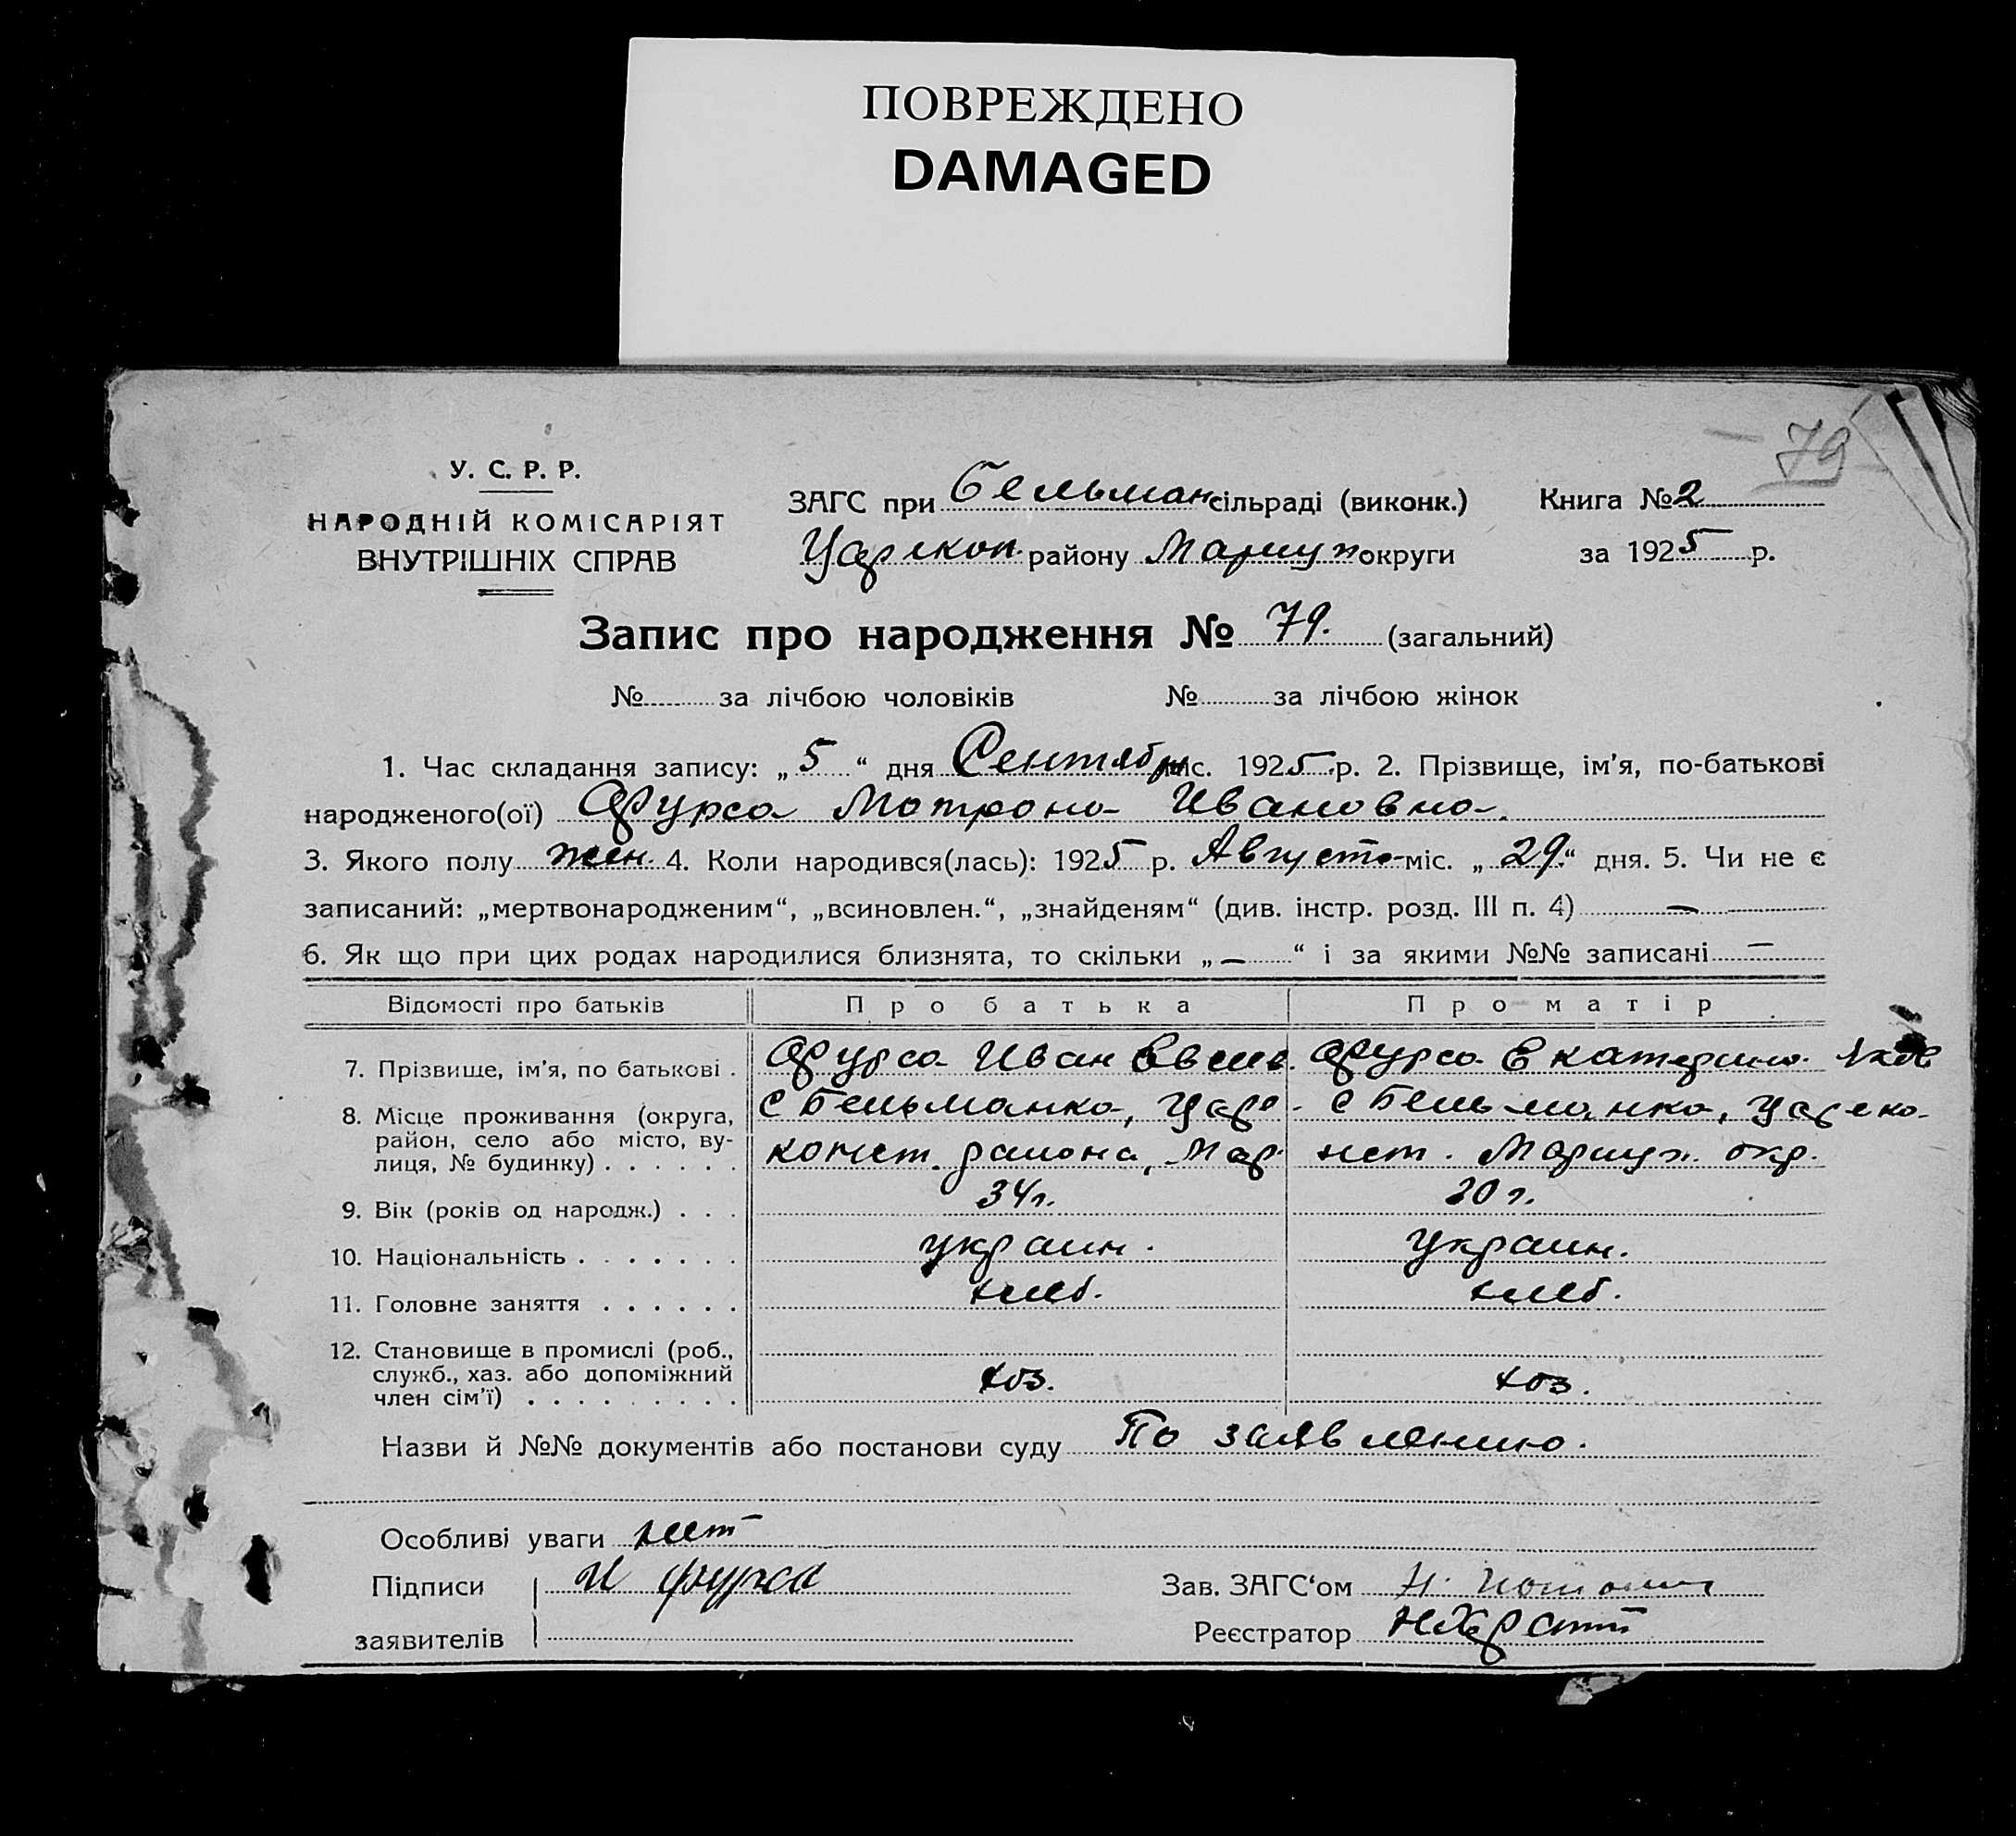 ПОВРЕЖДЕНО
DAMAGED
79
У. С. Р. Р.
НАРОДНІЙ КОМІСАРІЯТ
ВНУТРІШНІХ СПРАВ
ЗАГС при Бельман сільраді (виконк.) Книга № 2
Царекон. району Мариуп округи за 1925 р.
Запис про народження № 79. (загальний)
№ за лічбою чоловіків № за лічбою жінок
1. Час складання запису: „ 5 “ дня Сентябр міс. 1925 р. 2. Прізвище, ім’я, по-батькові
народженого(ої) Фурса Матрона Ивановна.
3. Якого полу жен. 4. Коли народився(лась): 1925 р. Августа міс. „ 29. “ дня. 5. Чи не є
записаний: „мертвонародженим“, „всиновлен.“, „знайденям“ (див. інстр. розд. III п. 4) —
6. Як що при цих родах народилися близнята, то скільки „ — “ і за якими №№ записані —
Відомості про батьків Про батька Про матір
7. Прізвище, ім’я, по батькові . Фурса Иван Фурса Екатерина Яков
8. Місце проживання (округа, район, село або місто, ву-лиця, № будинку) . . . . . . С Бельманка, Царе- конст. района, Мар. С Бельманка, Цареко- нст. Мариуп. окр.
9. Вік (років од народж.) . . . 34 г. 20 г.
10. Національність . . . . . . . украин. украин.
11. Головне заняття . . . . . . хлеб. хлеб.
12. Становище в промислі (роб., служб., хаз. або допоміжний член сім’ї) . . . . . . . . . хоз. хоз.
Назви й №№ документів або постанови суду По заявлению.
Особливі уваги нет
Підписи И Фурса Зав. ЗАГС‘ом
заявителів Реєстратор